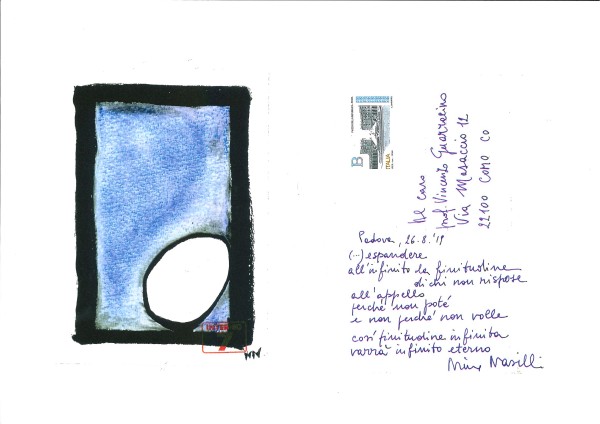 B
ITALIA
Al caro
prof. Vincenzo Guarracino
Via Masaccio 12
22100 COMO CO
Padova, 26.8.'19
(...) espandere
all'infinito la finitudine
di chi non rispose
all'appello
perché non poté
e non perché non volle
così finitudine infinita
varrà infinito eterno